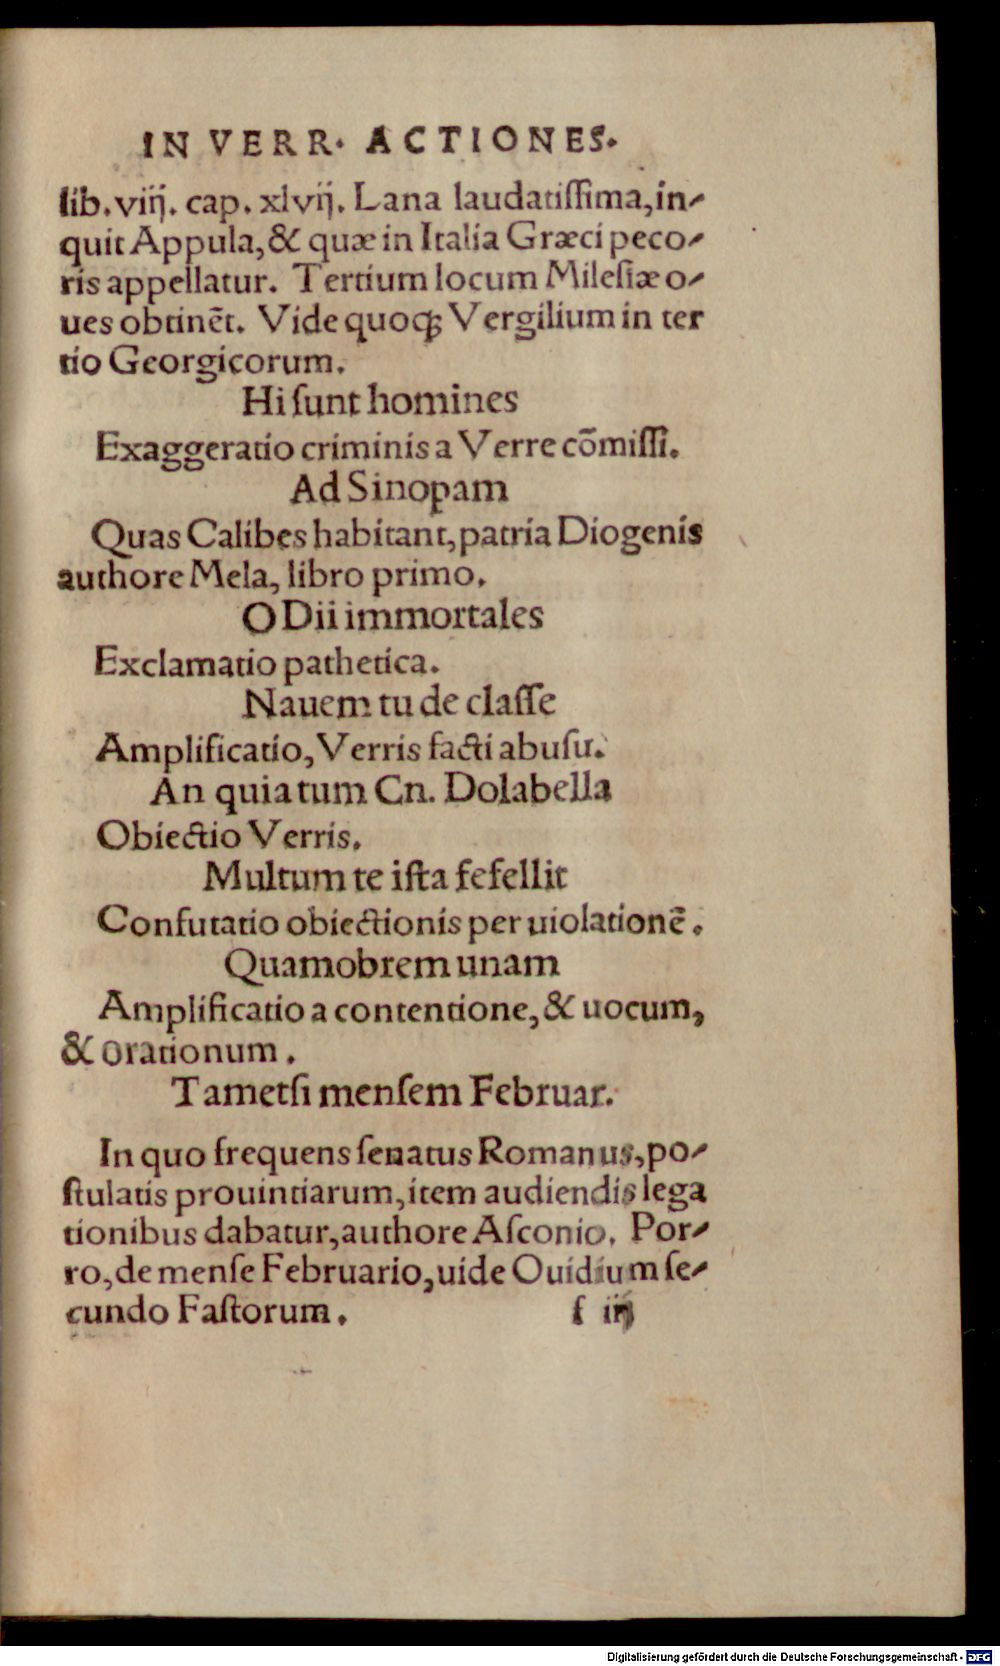 IN VERR. ACTIONES.
lib. viij. cap. xlvij. Lana laudatiſſima, in-
quit Appula, & quæ in Italia Græci peco-
ris appellatur. Tertium locum Mileſiæ o-
ues obtinēt. Vide quoqꝫ Vergilium in ter
tio Georgicorum.
Hi ſunt homines
Exaggeratio criminis a Verre cōmiſſi.
Ad Sinopam
Quas Calibes habitant, patria Diogenis
authore Mela, libro primo.
O Dii immortales
Exclamatio pathetica.
Nauem tu de claſſe
Amplificatio, Verris facti abuſu.
An quia tum Cn. Dolabella
Obiectio Verris.
Multum te iſta fefellit
Confutatio obiectionis per uiolationē.
Quamobrem unam
Amplificatio a contentione, & uocum,
& orationum.
Tametſi menſem Februar.
In quo frequens ſenatus Romanus, po-
ſtulatis prouintiarum, item audiendis lega
tionibus dabatur, authore Aſconio. Por-
ro, de menſe Februario, uide Ouidium ſe-
cundo Faſtorum.
f iij
Digitalisierung gefördert durch die Deutsche Forschungsgemeinschaft - DFG